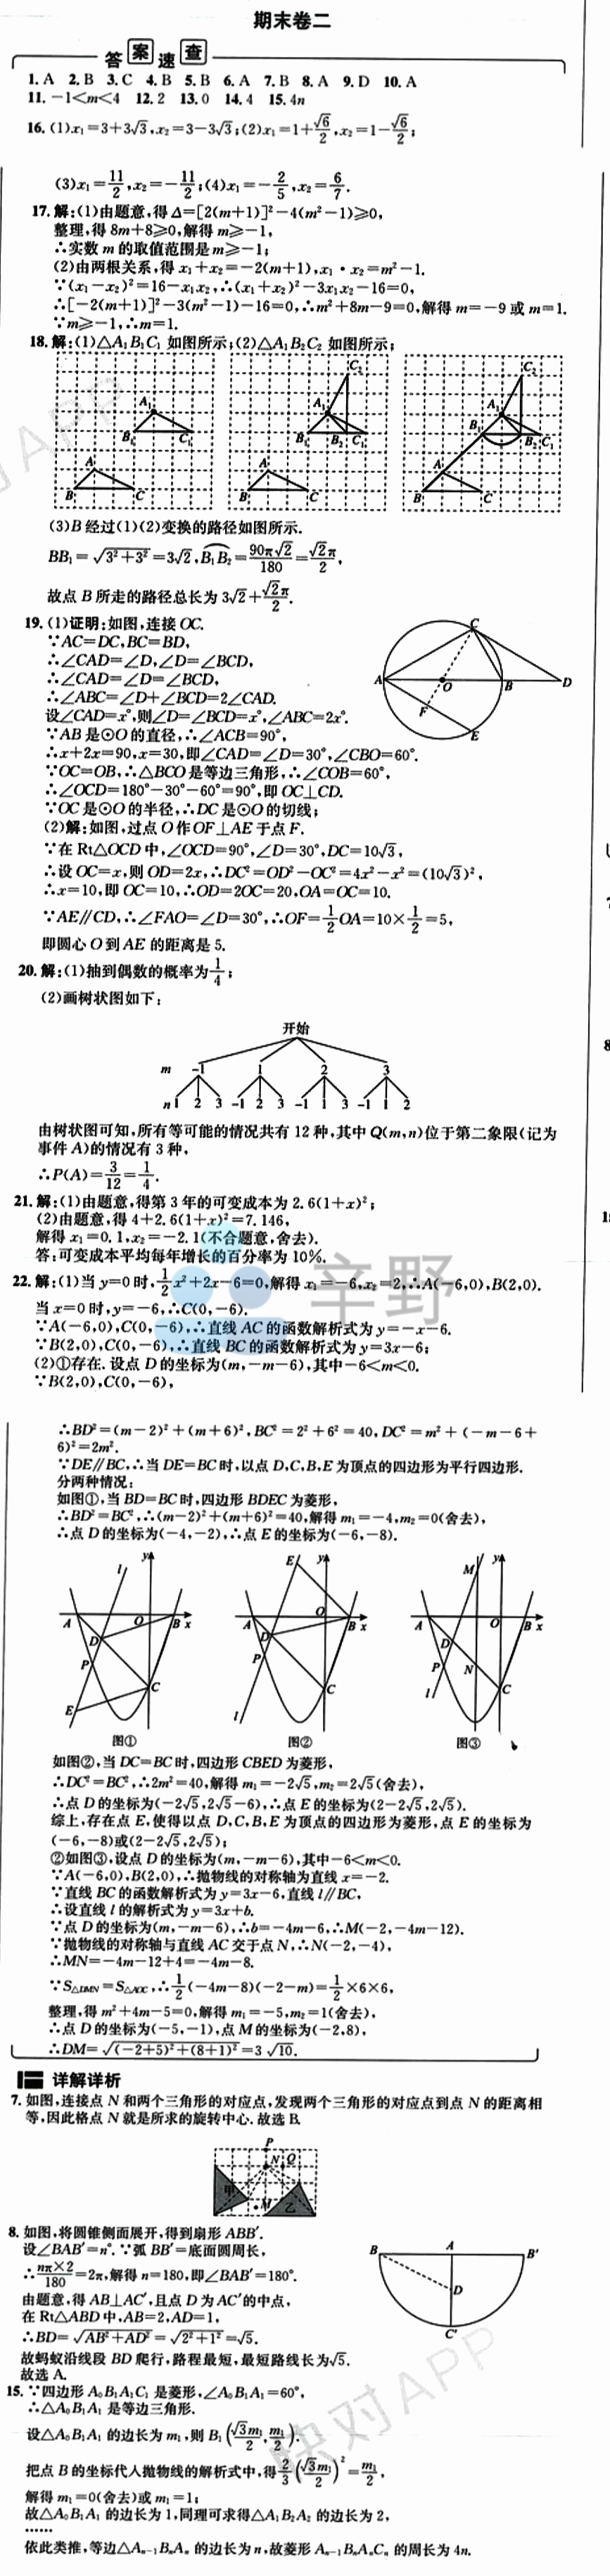 期末卷二
答案速查
1. A 2. B 3. C 4. B 5. B 6. A 7. B 8. A 9. D 10. A
11. －1<m<4 12. 2 13. 0 14. 4 15. 4n
16. (1)x₁=3+3√3,x₂=3－3√3;(2)x₁=1+√6/2,x₂=1－√6/2;
(3)x₁=11/2,x₂=－11/2;(4)x₁=－2/5,x₂=6/7.
17. 解:(1)由题意,得Δ=[2(m+1)]²－4(m²－1)≥0,
整理,得8m+8≥0,解得m≥－1,
∴实数m的取值范围是m≥－1;
(2)由两根关系,得x₁+x₂=－2(m+1),x₁·x₂=m²－1.
∵(x₁－x₂)²=16－x₁x₂,∴(x₁+x₂)²－3x₁x₂－16=0,
∴[－2(m+1)]²－3(m²－1)－16=0,∴m²+8m－9=0,解得m=－9或m=1.
∵m≥－1,∴m=1.
18. 解:(1)△A₁B₁C₁如图所示;(2)△A₁B₂C₂如图所示;
A₁ B₁ C₁ A B C
C₂ A₁ B₁ B₂ C₁ A B C
C₂ A₁ B₁ B₂ C₁ A B C
(3)B经过(1)(2)变换的路径如图所示.
BB₁=√(3²+3²)=3√2,B₁B₂=90π√2/180=√2π/2,
故点B所走的路径总长为3√2+√2π/2.
19. (1)证明:如图,连接OC.
∵AC=DC,BC=BD,
∴∠CAD=∠D,∠D=∠BCD,
∴∠CAD=∠D=∠BCD,
∴∠ABC=∠D+∠BCD=2∠CAD.
设∠CAD=x°,则∠D=∠BCD=x°,∠ABC=2x°.
∵AB是⊙O的直径,∴∠ACB=90°,
∴x+2x=90,x=30,即∠CAD=∠D=30°,∠CBO=60°.
∵OC=OB,∴△BCO是等边三角形,∴∠COB=60°,
∴∠OCD=180°－30°－60°=90°,即OC⊥CD.
∵OC是⊙O的半径,∴DC是⊙O的切线;
C A O B D F E
(2)解:如图,过点O作OF⊥AE于点F.
∵在Rt△OCD中,∠OCD=90°,∠D=30°,DC=10√3,
∴设OC=x,则OD=2x,∴DC²=OD²－OC²=4x²－x²=(10√3)²,
∴x=10,即OC=10,∴OD=2OC=20,OA=OC=10.
∵AE∥CD,∴∠FAO=∠D=30°,∴OF=1/2OA=10×1/2=5,
即圆心O到AE的距离是5.
20. 解:(1)抽到偶数的概率为1/4;
(2)画树状图如下:
开始
m －1 1 2 3
n 1 2 3 －1 2 3 －1 1 3 －1 1 2
由树状图可知,所有等可能的情况共有12种,其中Q(m,n)位于第二象限(记为
事件A)的情况有3种,
∴P(A)=3/12=1/4.
21. 解:(1)由题意,得第3年的可变成本为2.6(1+x)²;
(2)由题意,得4+2.6(1+x)²=7.146,
解得x₁=0.1,x₂=－2.1(不合题意,舍去).
答:可变成本平均每年增长的百分率为10%.
辛野
22. 解:(1)当y=0时,1/2x²+2x－6=0,解得x₁=－6,x₂=2,∴A(－6,0),B(2,0).
当x=0时,y=－6,∴C(0,－6).
∵A(－6,0),C(0,－6),∴直线AC的函数解析式为y=－x－6.
∵B(2,0),C(0,－6),∴直线BC的函数解析式为y=3x－6;
(2)①存在.设点D的坐标为(m,－m－6),其中－6<m<0.
∵B(2,0),C(0,－6),
∴BD²=(m－2)²+(m+6)²,BC²=2²+6²=40,DC²=m²+(－m－6+
6)²=2m².
∵DE∥BC,∴当DE=BC时,以点D,C,B,E为顶点的四边形为平行四边形.
分两种情况:
如图①,当BD=BC时,四边形BDEC为菱形,
∴BD²=BC²,∴(m－2)²+(m+6)²=40,解得m₁=－4,m₂=0(舍去),
∴点D的坐标为(－4,－2),∴点E的坐标为(－6,－8).
l y A O B x D P C E
E y A O B x D P C l
M y A O B x D P N C l
图① 图② 图③
如图②,当DC=BC时,四边形CBED为菱形,
∴DC²=BC²,∴2m²=40,解得m₁=－2√5,m₂=2√5(舍去),
∴点D的坐标为(－2√5,2√5－6),∴点E的坐标为(2－2√5,2√5).
综上,存在点E,使得以点D,C,B,E为顶点的四边形为菱形,点E的坐标为
(－6,－8)或(2－2√5,2√5);
②如图③,设点D的坐标为(m,－m－6),其中－6<m<0.
∵A(－6,0),B(2,0),∴抛物线的对称轴为直线x=－2.
∵直线BC的函数解析式为y=3x－6,直线l∥BC,
∴设直线l的解析式为y=3x+b.
∵点D的坐标为(m,－m－6),∴b=－4m－6,∴M(－2,－4m－12).
∵抛物线的对称轴与直线AC交于点N,∴N(－2,－4),
∴MN=－4m－12+4=－4m－8.
∵S△DMN=S△AOC,∴1/2(－4m－8)(－2－m)=1/2×6×6,
整理,得m²+4m－5=0,解得m₁=－5,m₂=1(舍去),
∴点D的坐标为(－5,－1),点M的坐标为(－2,8),
∴DM=√((－2+5)²+(8+1)²)=3√10.
详解详析
7. 如图,连接点N和两个三角形的对应点,发现两个三角形的对应点到点N的距离相
等,因此格点N就是所求的旋转中心.故选B.
P N Q 甲 M 乙
8. 如图,将圆锥侧面展开,得到扇形ABB′.
设∠BAB′=n°.∵弧BB′=底面圆周长,
∴nπ×2/180=2π,解得n=180,即∠BAB′=180°.
由题意,得AB⊥AC′,且点D为AC′的中点,
在Rt△ABD中,AB=2,AD=1,
∴BD=√(AB²+AD²)=√(2²+1²)=√5.
故蚂蚁沿线段BD爬行,路程最短,最短路线长为√5.
故选A.
B A B′ D C′
15. ∵四边形A₀B₁A₁C₁是菱形,∠A₀B₁A₁=60°,
∴△A₀B₁A₁是等边三角形.
设△A₀B₁A₁的边长为m₁,则B₁(√3m₁/2,m₁/2).
把点B的坐标代入抛物线的解析式中,得2/3(√3m₁/2)²=m₁/2,
解得m₁=0(舍去)或m₁=1;
故△A₀B₁A₁的边长为1,同理可求得△A₁B₂A₂的边长为2,
……
依此类推,等边△Aₙ₋₁BₙAₙ的边长为n,故菱形Aₙ₋₁BₙAₙCₙ的周长为4n.
快对APP